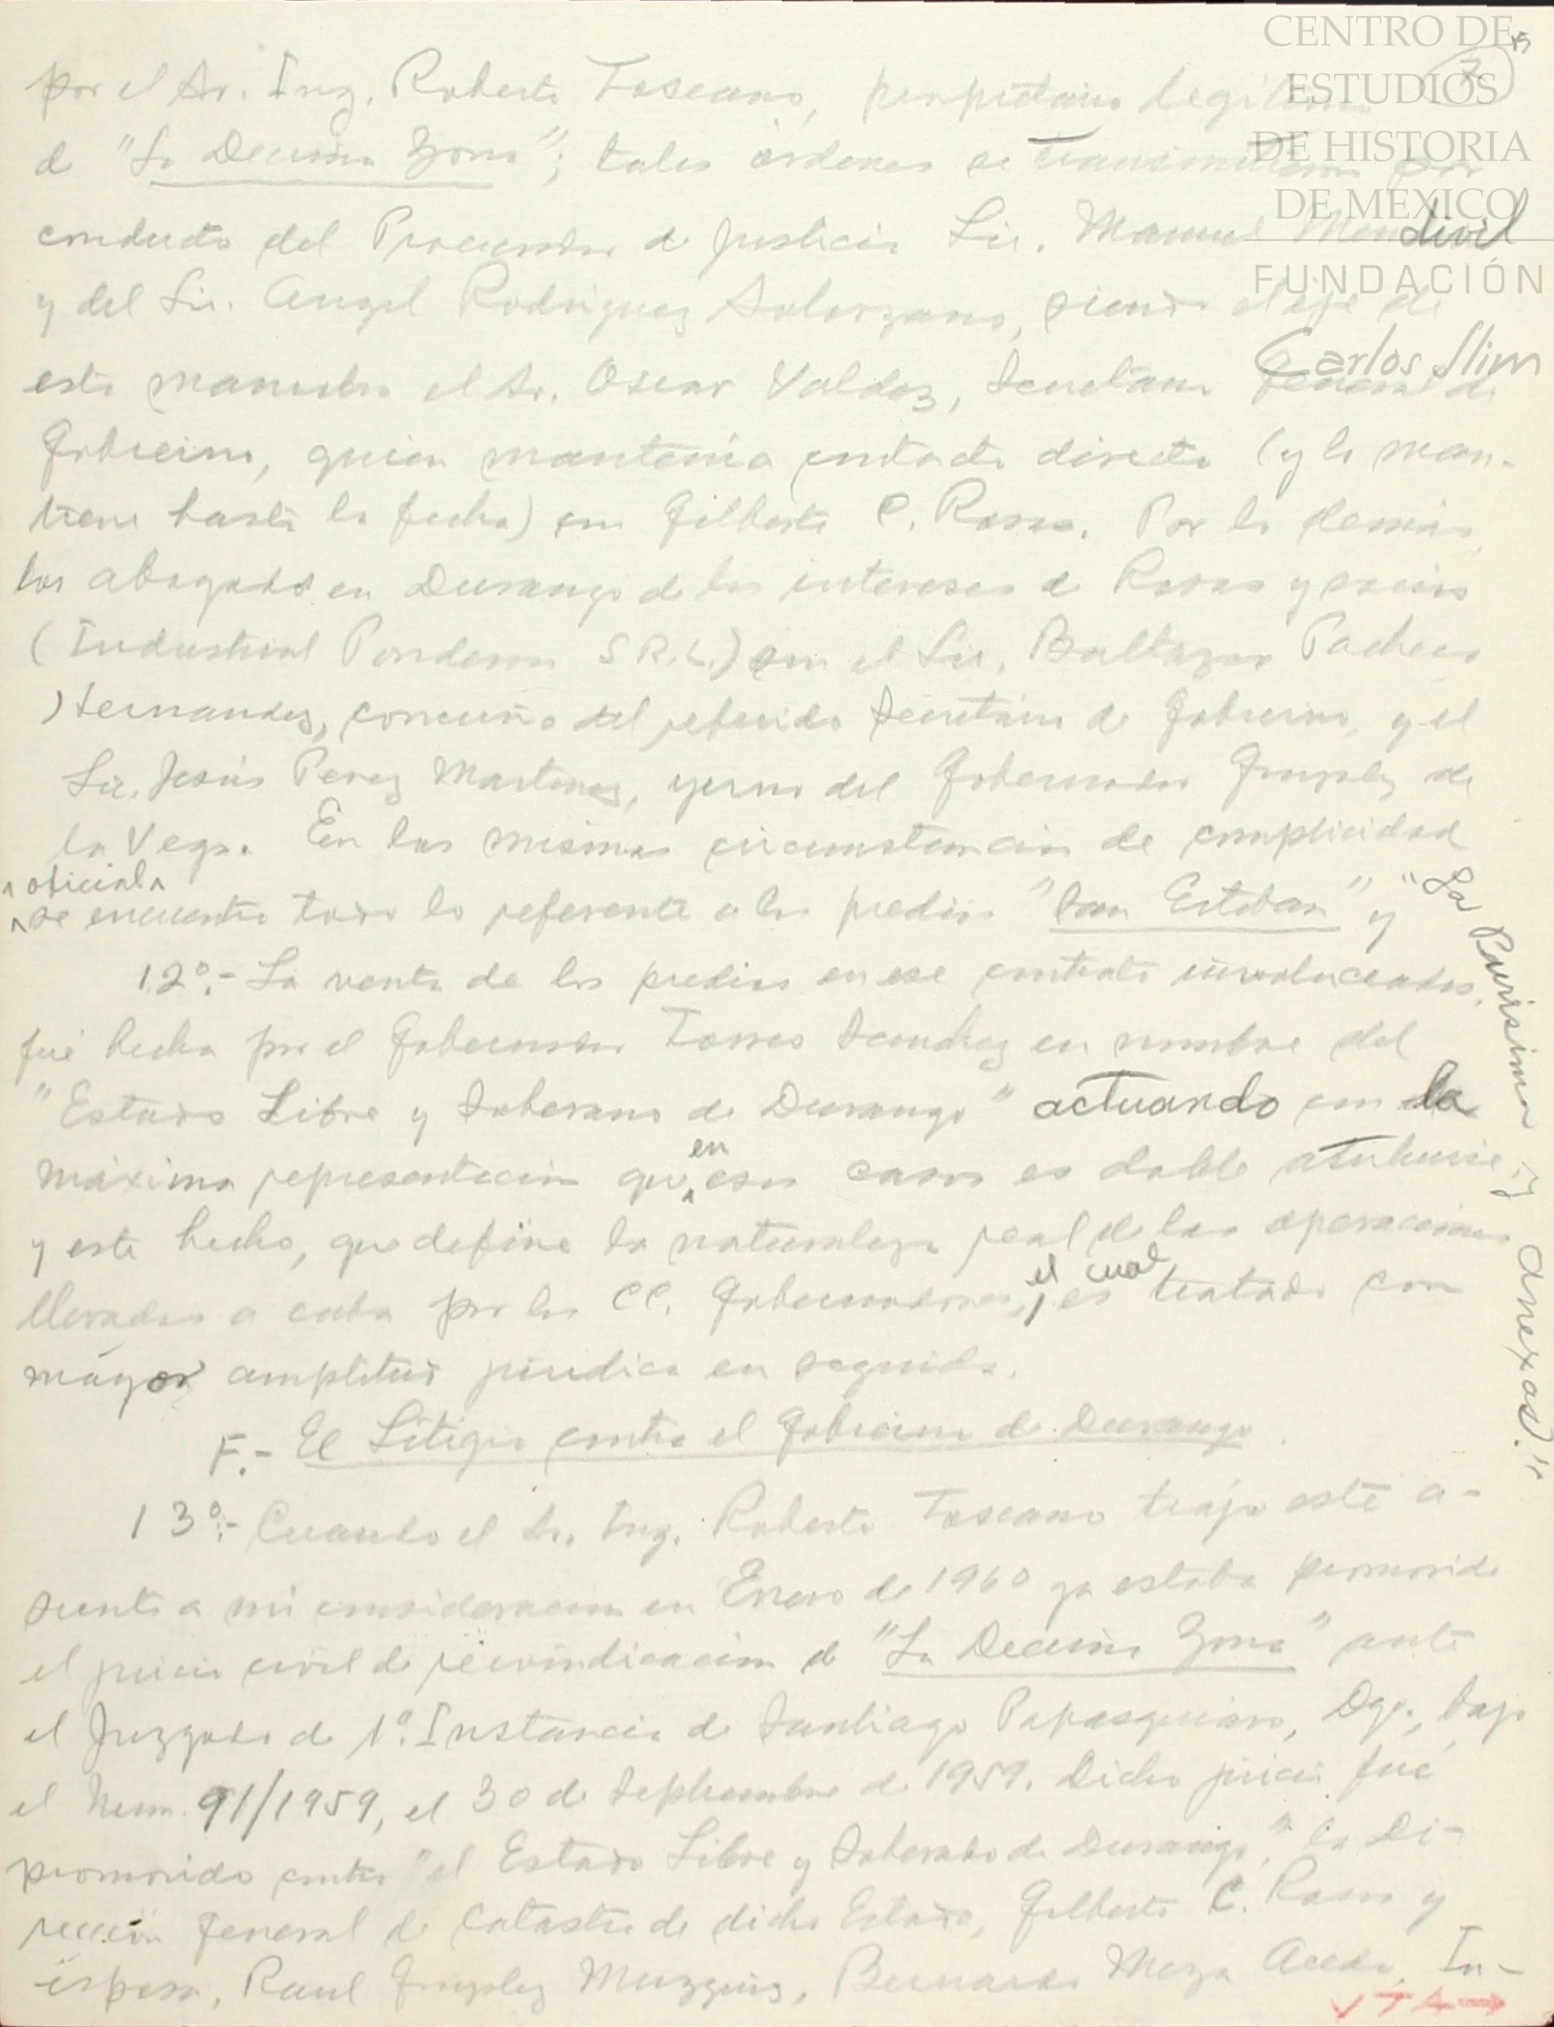 CENTRO DE
ESTUDIOS
DE HISTORIA
DE MÉXICO
FUNDACIÓN
Carlos Slim
por el Sr. Ing. Roberto Toscano, propietario legítimo
de "La Decima Zona"; tales órdenes se transmitieron por
conducto del Procurador de Justicia Lic. Manuel Mendivil
y del Lic. Angel Rodriguez Solorzano, siendo el eje de
esta maniobra el Sr. Oscar Valdez, Secretario General de
Gobierno, quien mantenía contacto directo (y lo man-
tiene hasta la fecha) con Gilberto C. Rosas. Por lo demás,
los abogados en Durango de los intereses de Rosas y socios
(Industrial Ponderosa S R.L.) son el Lic. Baltazar Pacheco
Hernandez, concuño del referido Secretario de Gobierno, y el
Lic. Jesús Perez Martinez, yerno del Gobernador Gonzalez de
la Vega. En las mismas circunstancias de complicidad
oficial
se encuentra todo lo referente a los predios "San Esteban" y "La Purisima y anexos."
12º.- La venta de los predios en ese contrato involucrados,
fué hecha por el Gobernador Torres Sanchez en nombre del
"Estado Libre y Soberano de Durango" actuando con la
máxima representación que en esos casos es dable atribuirse,
y este hecho, que define la naturaleza real de las operaciones
llevadas a cabo por los CC. Gobernadores, el cual es tratado con
mayor amplitud jurídica en seguida.
F.- El Litigio contra el Gobierno de Durango.
13º.- Cuando el Sr. Ing. Roberto Toscano trajo este a-
sunto a mi consideración en Enero de 1960 ya estaba promovido
el juicio civil de reivindicación de "La Decima Zona" ante
el Juzgado de 1ª. Instancia de Santiago Papasquiaro, Dgo., bajo
el Num. 91/1959, el 30 de Septiembre de 1959. Dicho juicio fué
promovido contra "el Estado Libre y Soberano de Durango," la Di-
rección General de Catastro de dicho Estado, Gilberto C. Rosas y
esposa, Raul Gonzalez Muzquiz, Bernardo Meza Acedo, In-
VTA→